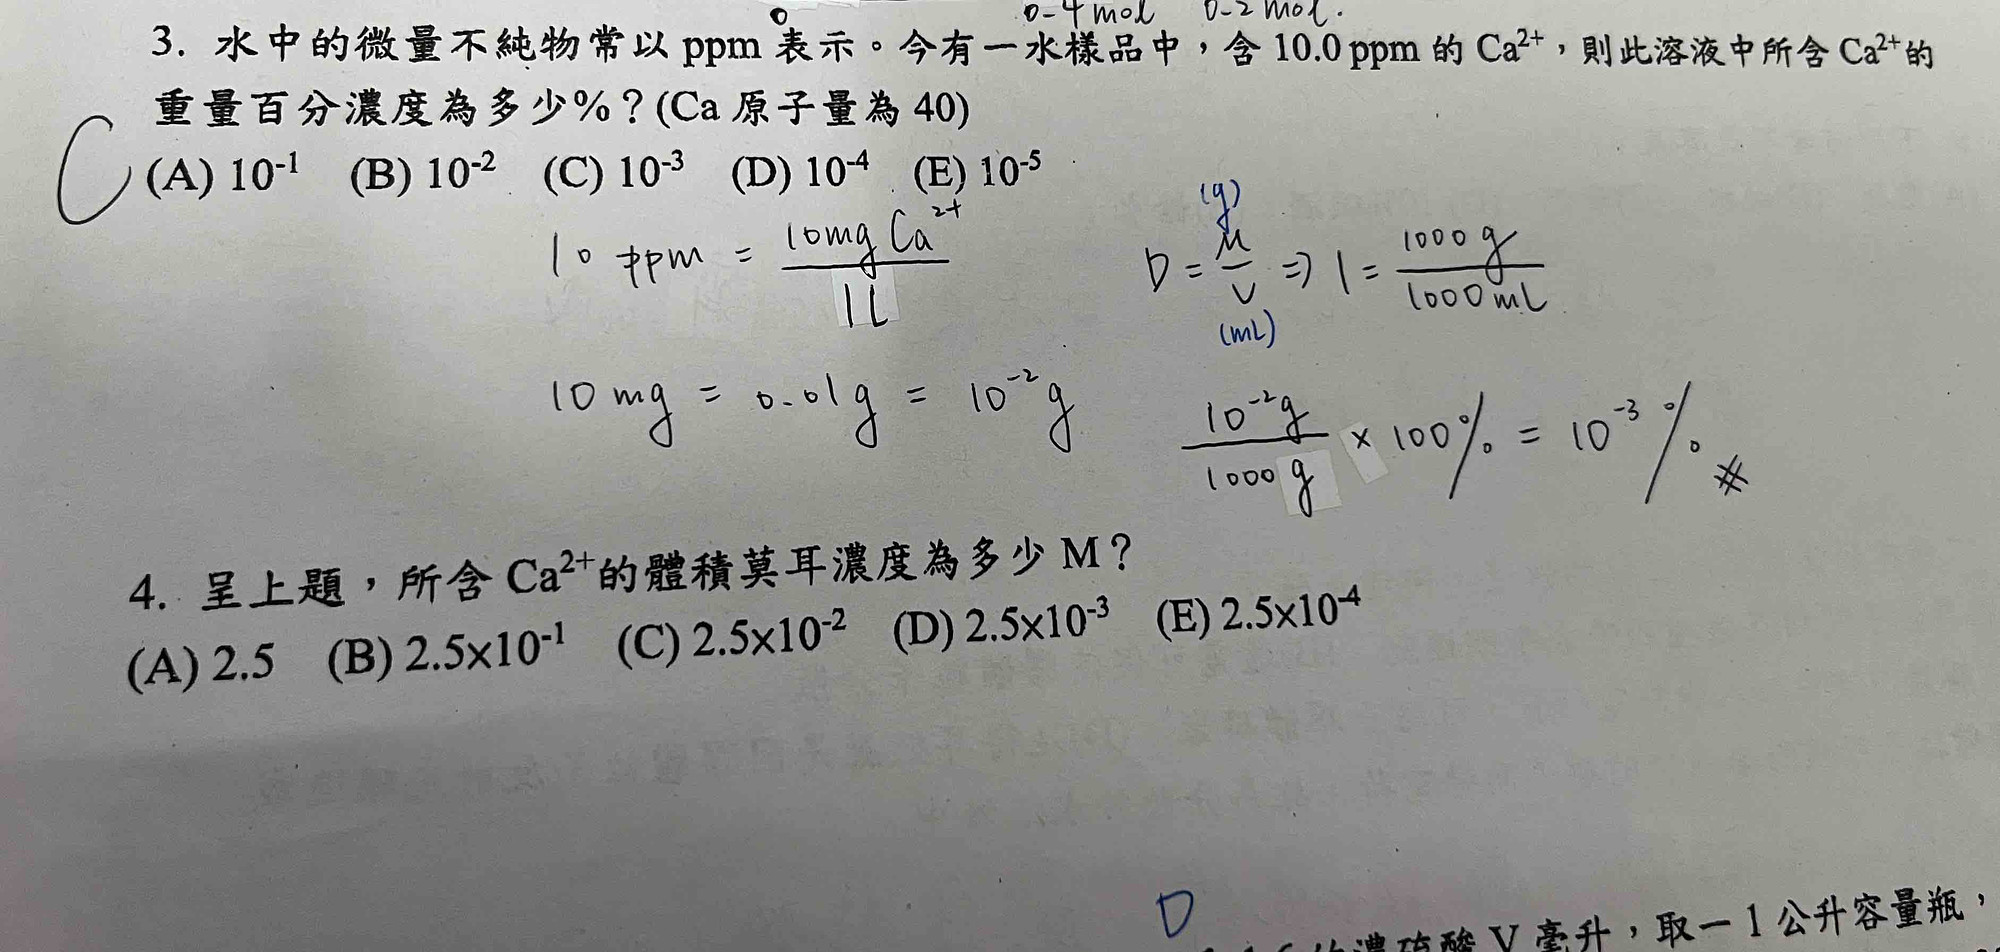 0-4 mol 0-2 mol.
3. 水中的微量不純物常以 ppm 表示。今有一水樣品中，含 10.0 ppm 的 Ca²⁺，則此溶液中所含 Ca²⁺的
重量百分濃度為多少%？(Ca 原子量為 40)
C (A) 10⁻¹ (B) 10⁻² (C) 10⁻³ (D) 10⁻⁴ (E) 10⁻⁵
10 ppm = 10mg Ca²⁺ / 1L
D = M (g) / V (mL) ⇒ 1 = 1000 g / 1000 mL
10 mg = 0.01 g = 10⁻² g
10⁻² g / 1000 g × 100% = 10⁻³ % #
4. 呈上題，所含 Ca²⁺的體積莫耳濃度為多少 M？
(A) 2.5 (B) 2.5×10⁻¹ (C) 2.5×10⁻² (D) 2.5×10⁻³ (E) 2.5×10⁻⁴
D
的濃硫酸 V 毫升，取一 1 公升容量瓶，